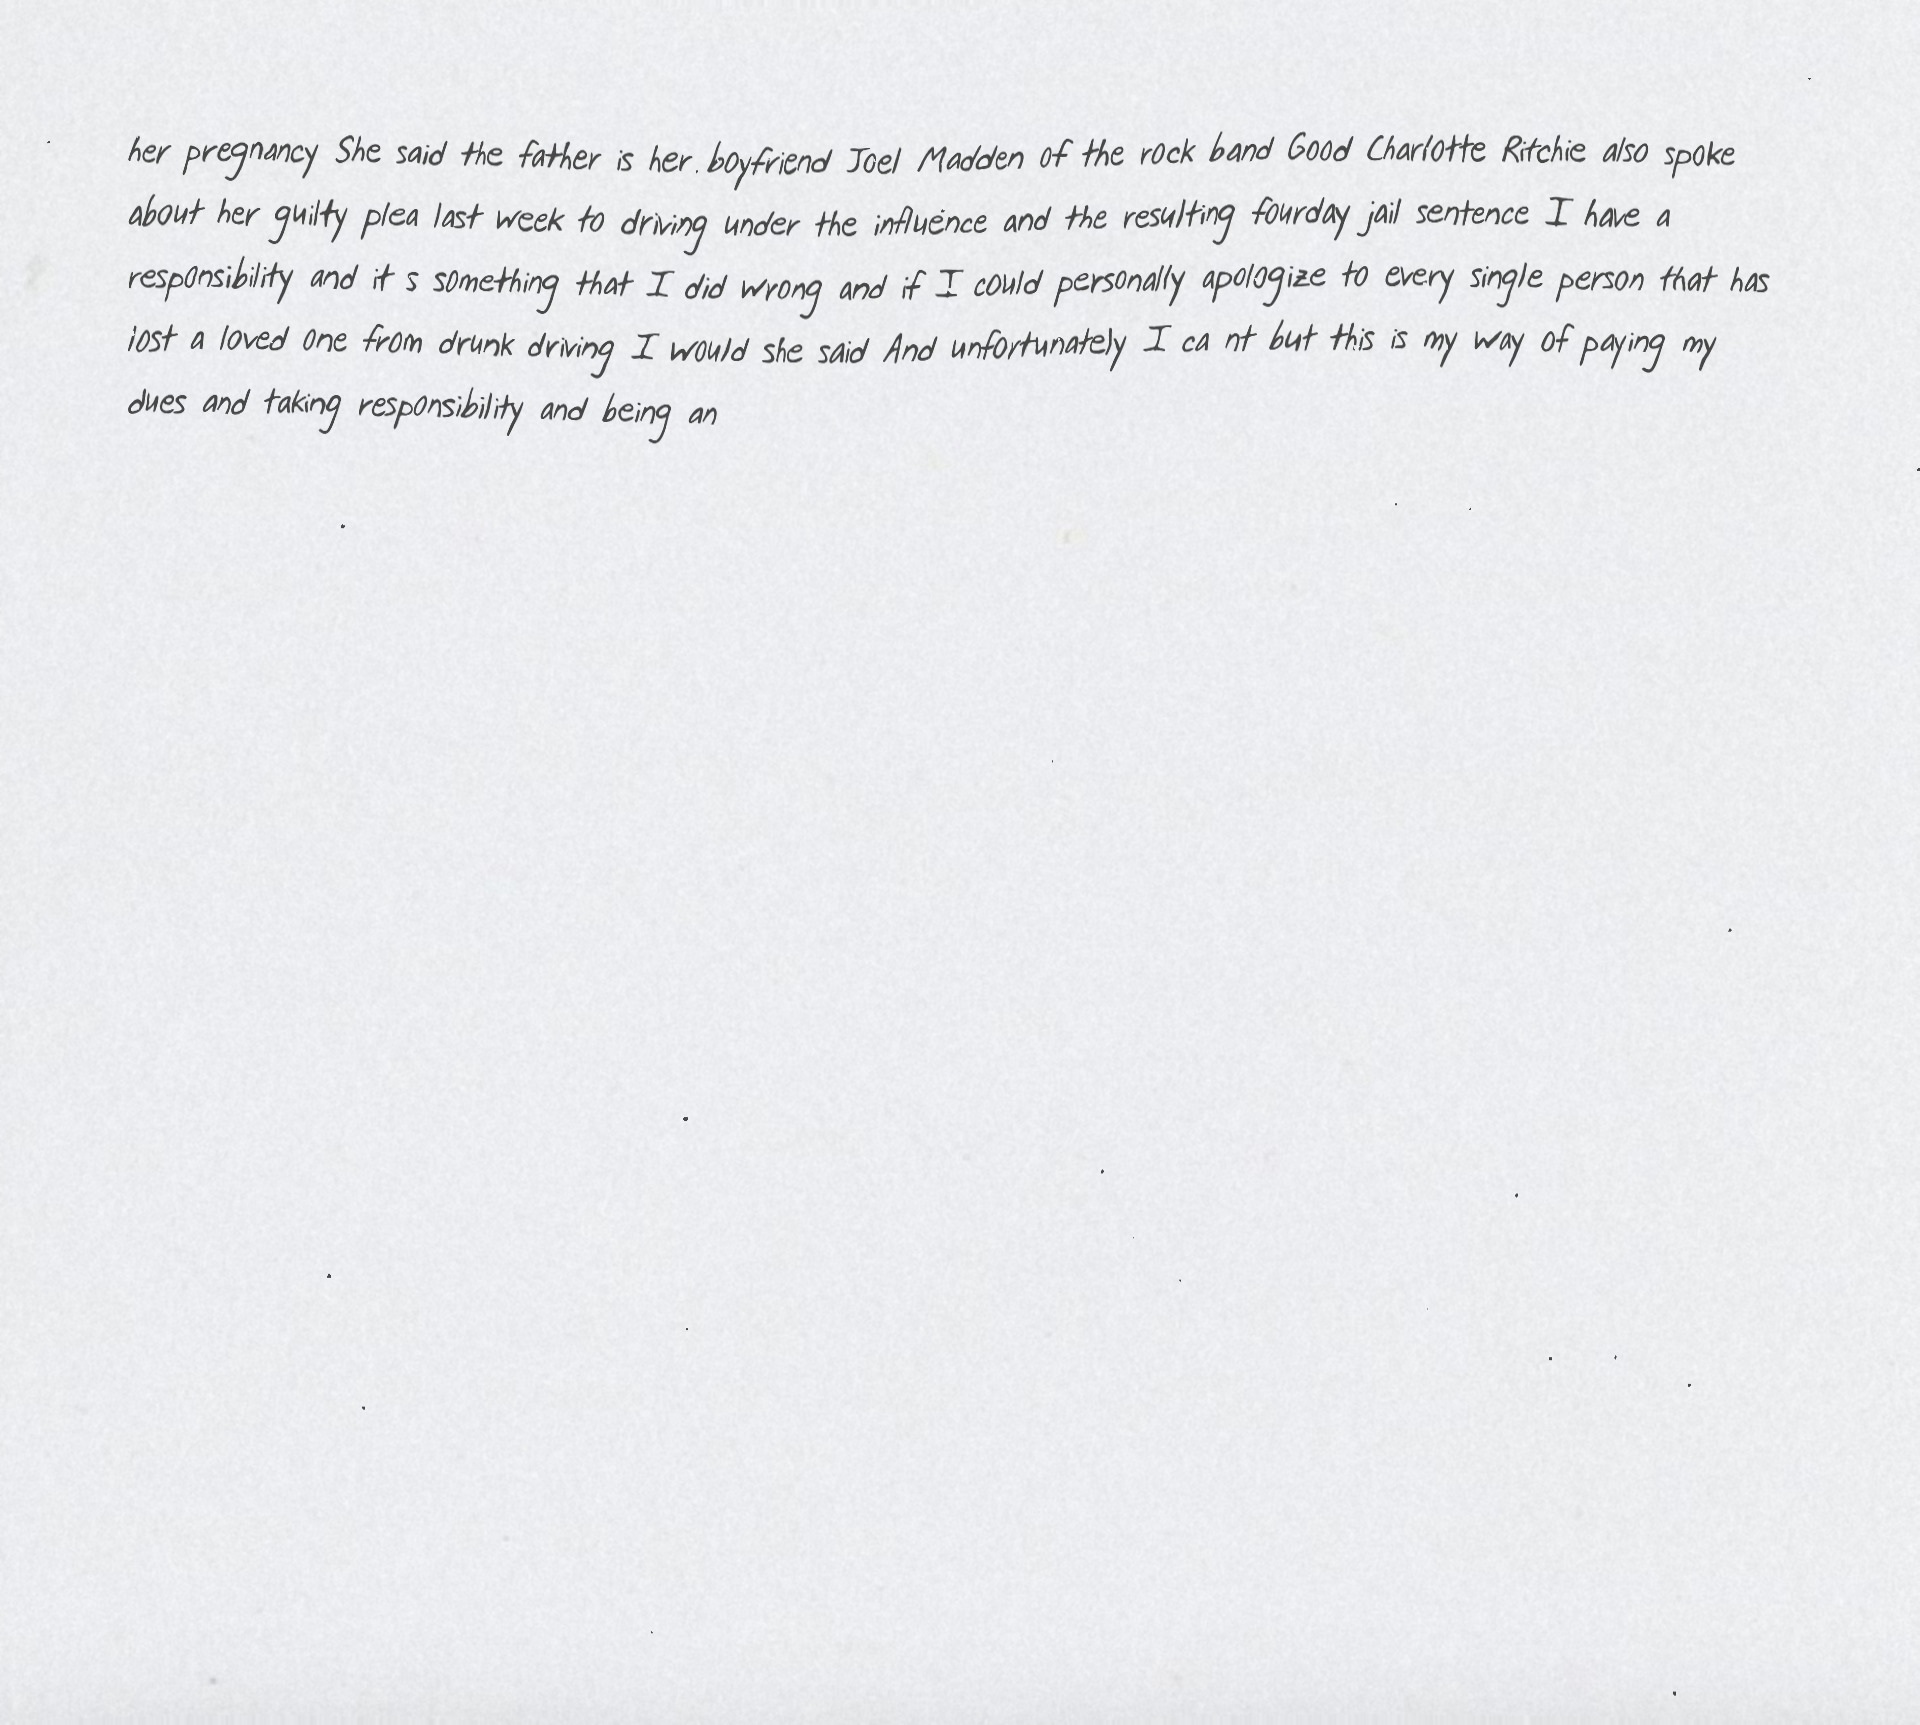 her pregnancy She said the father is her boyfriend Joel Madden of the rock band Good Charlotte Ritchie also spoke
about her guilty plea last week to driving under the influence and the resulting fourday jail sentence I have a
responsibility and it s something that I did wrong and if I could personally apologize to every single person that has
lost a loved one from drunk driving I would she said And unfortunately I ca nt but this is my way of paying my
dues and taking responsibility and being an